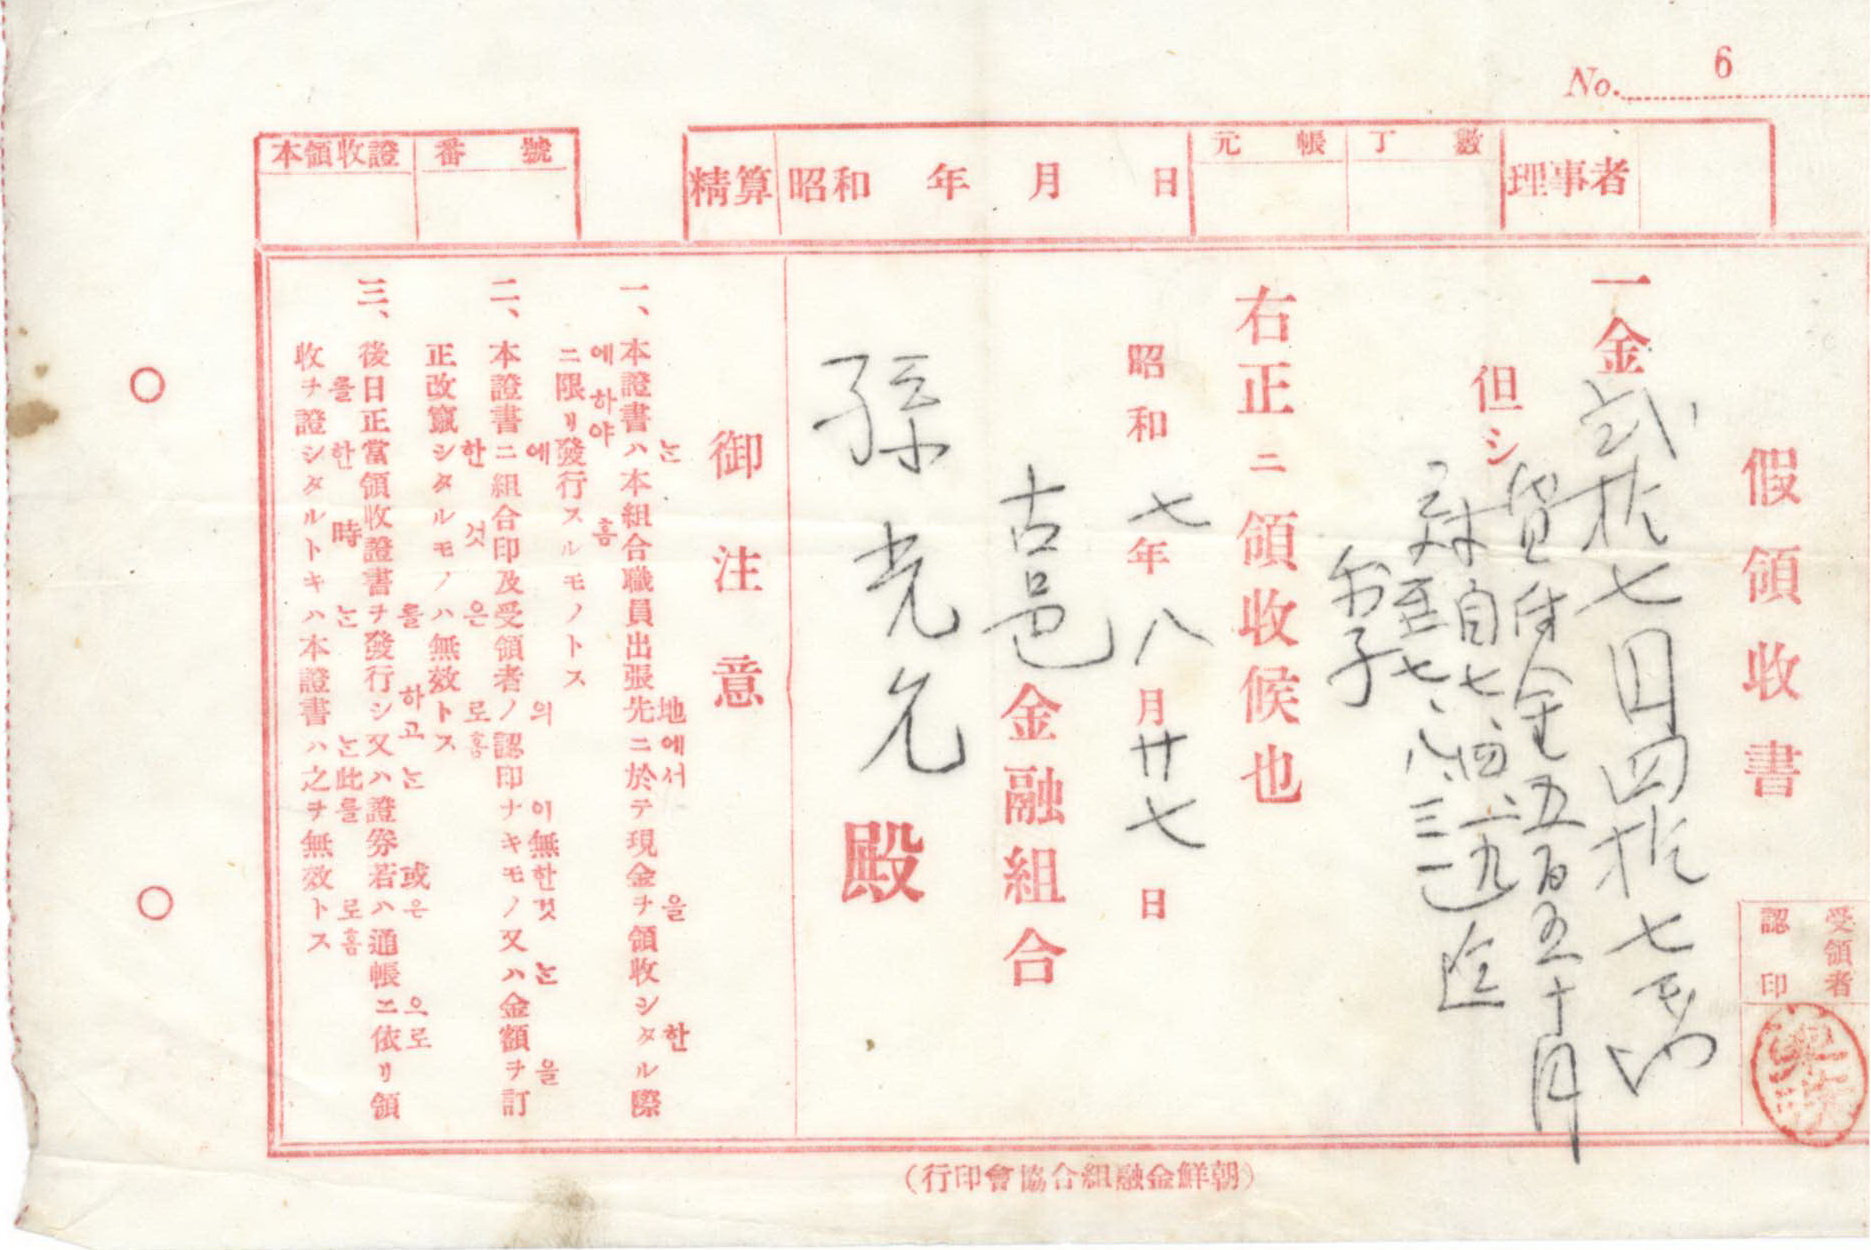 No. 6
理事者
元帳丁數
精算 昭和 年 月 日
本領收證番號
假領收書
受領者
認印
一金 弐拾七円四拾七戔也
但シ 貸付金五百五十円
対自七、四、二九
至七、八、三一迄
利子
右正ニ領收候也
昭和七年八月廿七日
古邑金融組合
孫光允殿
御注意
는 地에서 을 한
一、本證書ハ本組合職員出張先ニ於テ現金ヲ領收シタル際
에하야 홈
ニ限リ發行スルモノトス
에 의 이無한것는 을
二、本證書ニ組合印及受領者ノ認印ナキモノ又ハ金額ヲ訂
한 것은 로홈
正改竄シタルモノハ無效トス
를 하고는 或은 으로
三、後日正當領收證書ヲ發行シ又ハ證券若ハ通帳ニ依リ領
를 한 時는 는此를 로홈
收ヲ證シタルトキハ本證書ハ之ヲ無效トス
(朝鮮金融組合協會印行)